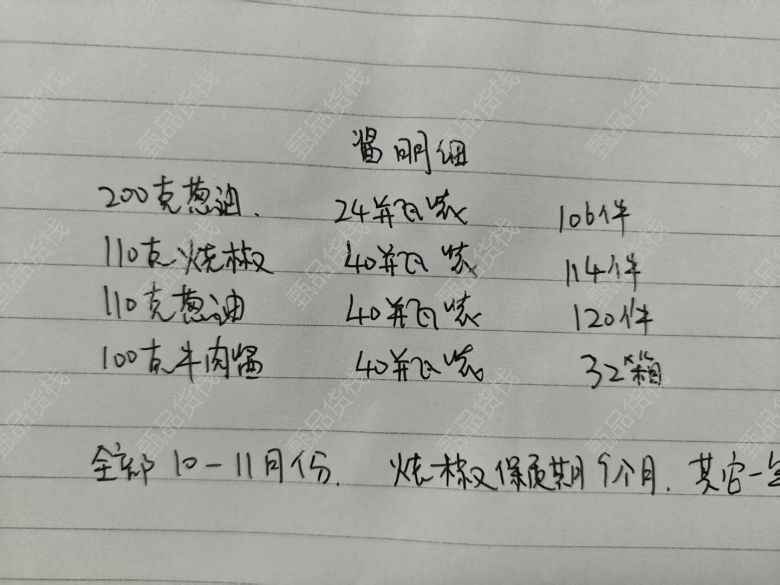 酱明细
200克葱油. 24瓶装 106件
110克烧椒 40瓶装 114件
110克葱油 40瓶装 120件
100克牛肉酱 40瓶装 32箱
全部10-11月份. 烧椒保质期9个月. 其它一年
甄品货栈